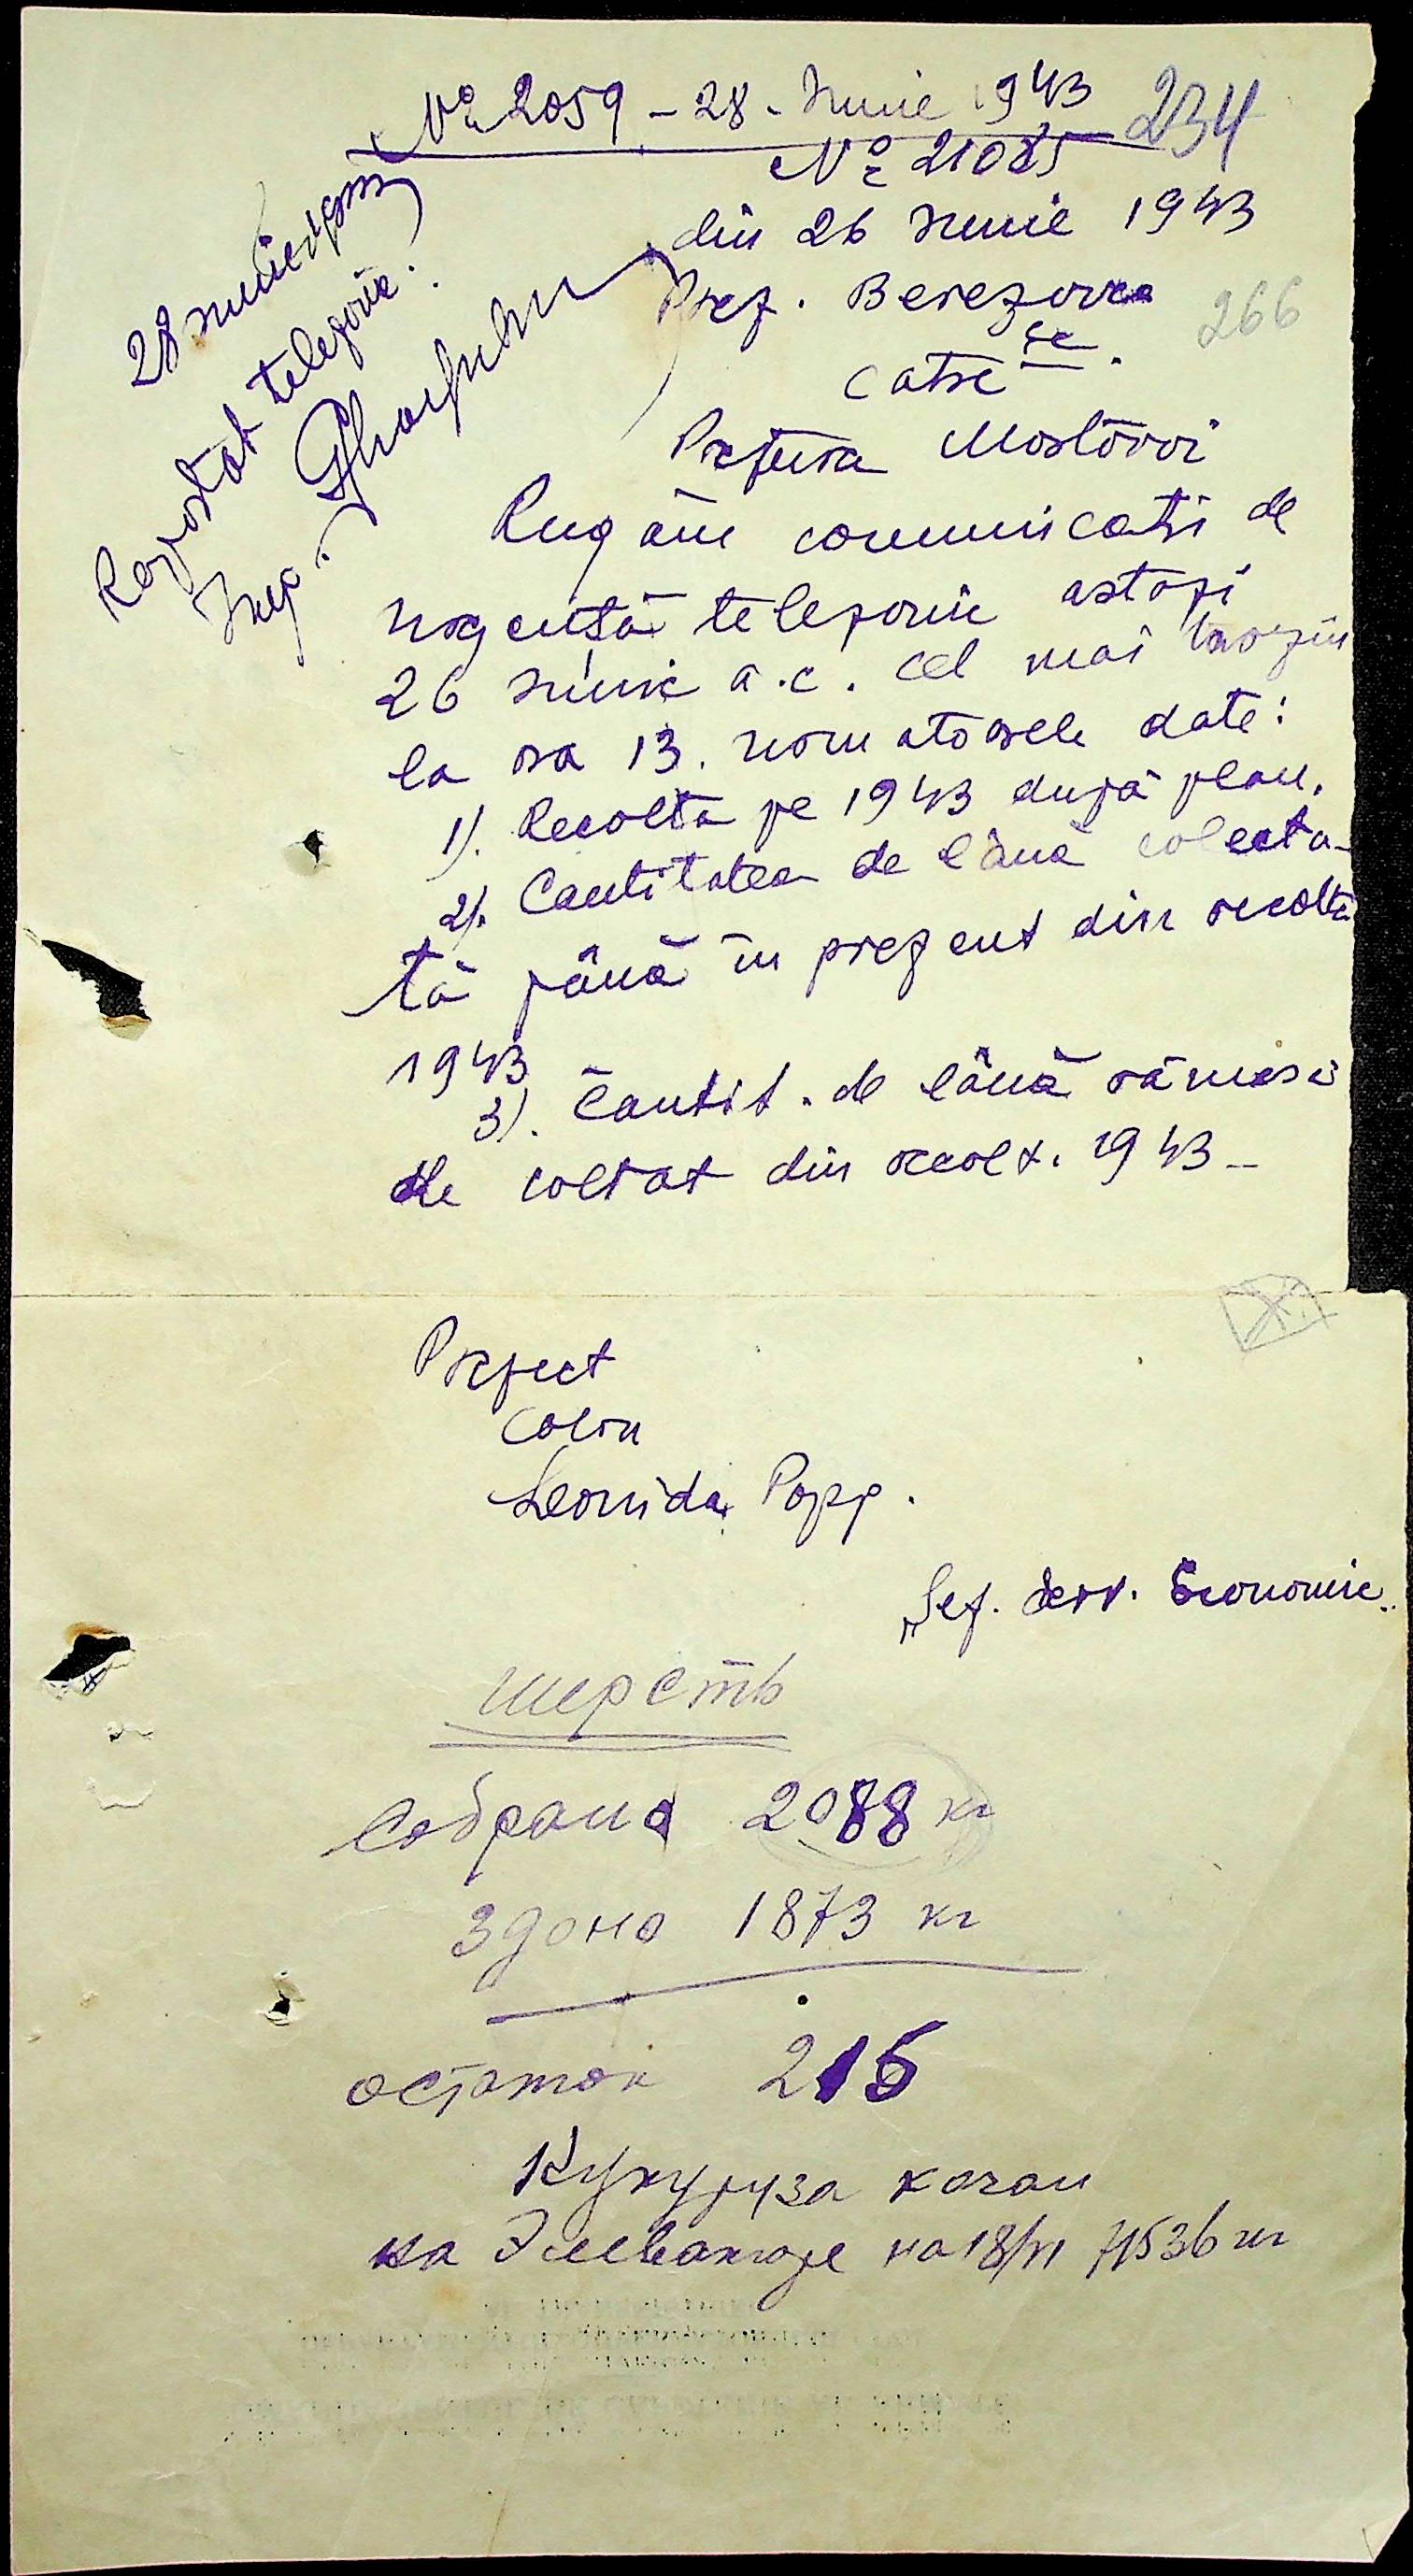 № 2059 - 28 - Iunie 1943
234
№ 21085
din 26 Iunie 1943
Pref. Berezovca
266
către
Pretura Mostovoi
28 Iunie
Raportat telefonic.
Rugăm comunicați de
urgență telefonic astăzi
26 Iunie a.c. cel mai târziu
la ora 13. următoarele date:
1). Recolta pe 1943 după plan.
2). Cantitatea de lână colecta-
tă până în prezent din recolta
1943
3). Cantit. de lână rămasă
de coltat din recolt. 1943 -
Prefect
Colon
Leonida Popp.
Șef. Serv. Economic.
шерсть
Собрано 2088 кг
здоно 1873 кг
остаток 215
Кукуруза качан
на на 18/VI кг